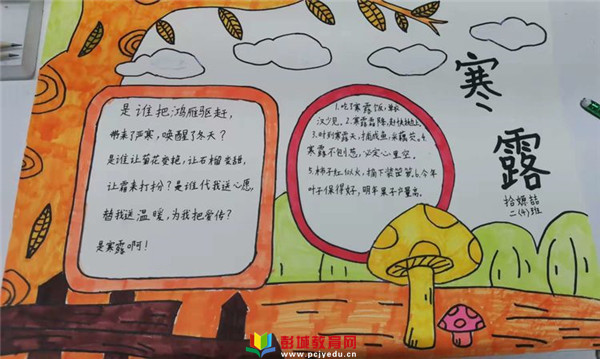 寒露
拾嫄喆
二(4)班
是谁把鸿雁驱赶，
带来了严寒，唤醒了冬天？
是谁让菊花变艳，让石榴变甜，
让霜来打扮？是谁代我送心愿，
替我送温暖，为我把爱传？
是寒露啊！
1.吃了寒露饭，单
衣汉少见。2.寒露霜降，赶快抛上
3.时到寒露天，捕成鱼，采藕芡。4.
寒露不刨葱，必定心里空。
5.柿子红似火，摘下装筐箩。6.今年
叶子保得好，明年果子产量高。
彭城教育网
www.pcjyedu.cn